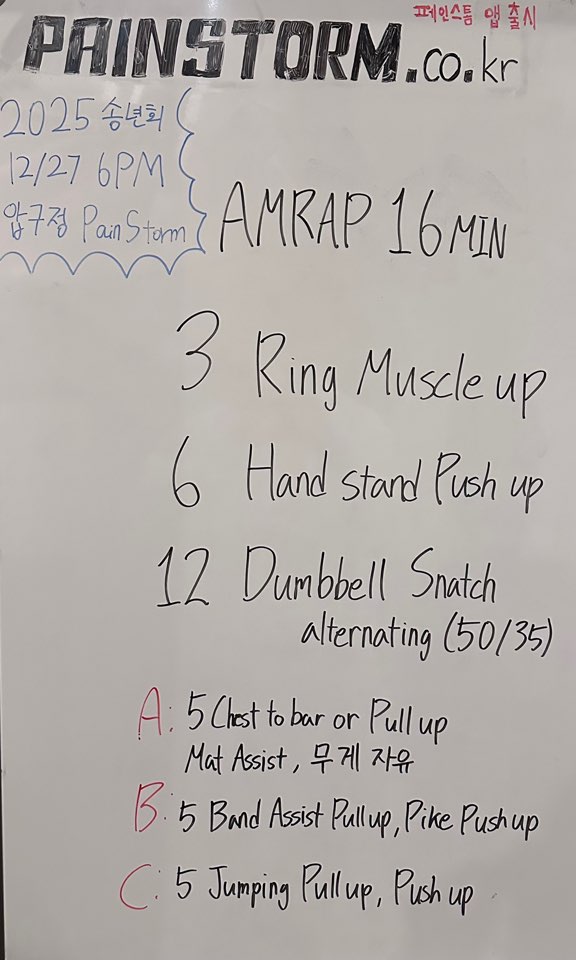 페인스톰 앱 출시
PAINSTORM.co.kr
2025 송년회
12/27 6PM
압구정 PainStorm
AMRAP 16 MIN
3 Ring Muscle up
6 Hand stand Push up
12 Dumbbell Snatch
alternating (50/35)
A: 5 Chest to bar or Pull up
Mat Assist, 무게 자유
B: 5 Band Assist Pull up, Pike Push up
C: 5 Jumping Pull up, Push up